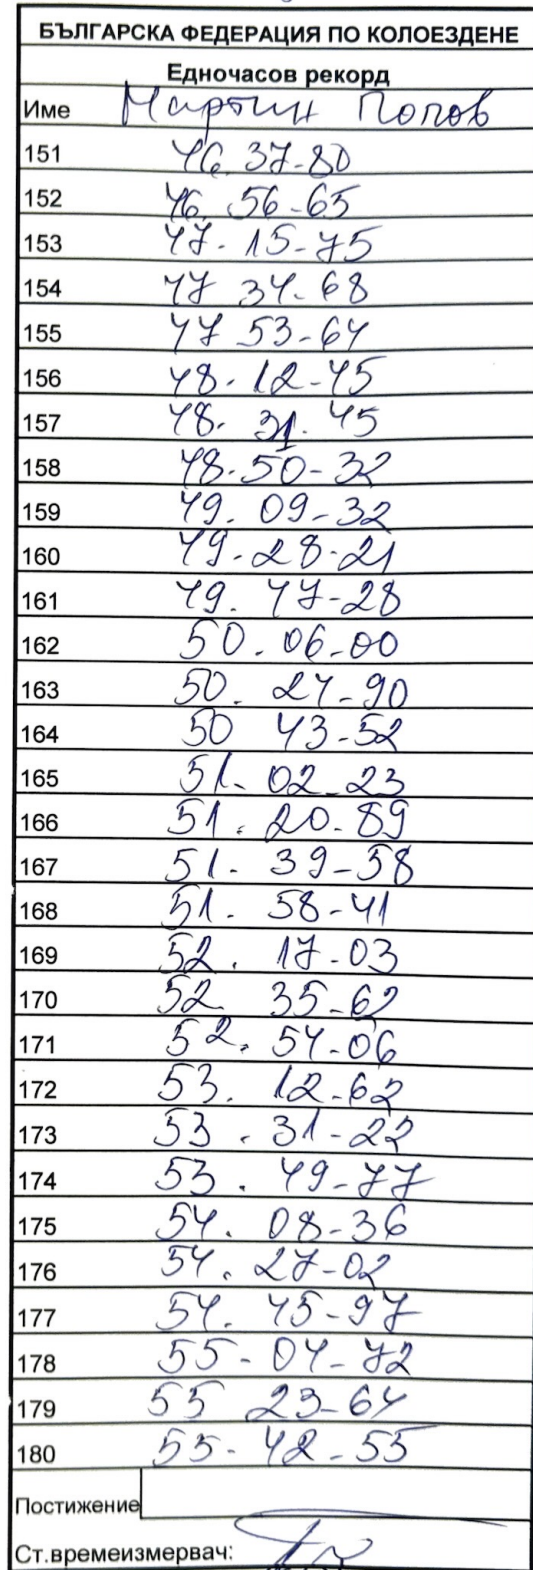 БЪЛГАРСКА ФЕДЕРАЦИЯ ПО КОЛОЕЗДЕНЕ
Едночасов рекорд
Име Мартин Попов
151 46.37-80
152 46.56-65
153 47.15-75
154 47 34-68
155 47 53-64
156 48.12-45
157 48.31.45
158 48.50-32
159 49.09-32
160 49.28.21
161 49.47-28
162 50.06-00
163 50.24-90
164 50 43-52
165 51.02-23
166 51.20-89
167 51.39-58
168 51.58-41
169 52.17-03
170 52 35-62
171 52.54-06
172 53.12-62
173 53.31-22
174 53.49-77
175 54.08-36
176 54.27-02
177 54.45-97
178 55-04-72
179 55 23-64
180 55-42-55
Постижение
Ст.времеизмервач: